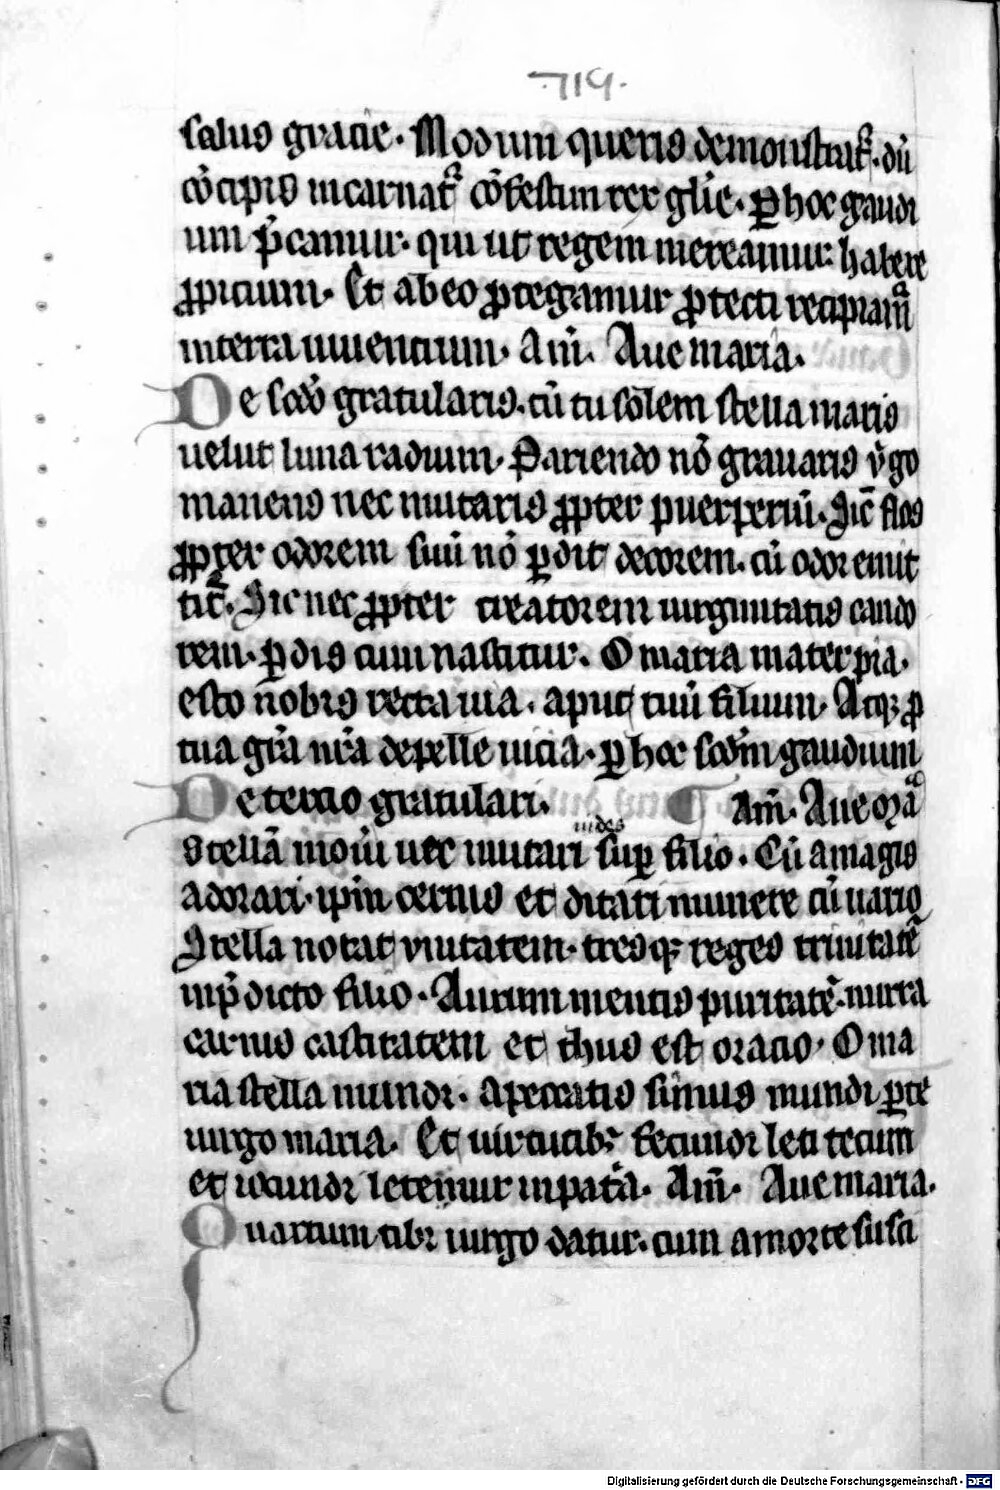 ·719·
salus gracie. Modum queris demonstrat᷑. dū
cōcipis incarnat᷑ cōtestim rex glīe. ꝑ hoc gaudi
um p̄camur. qui ut regem mereamur habere
ꝓpicium. Et ab eo ꝓtegamur ꝓtecti recipiam᷑
in terra uiuencium. Am̄. Aue maria.
De scd̄o gratularis. cū tu sōlem stella maris
uelut luna radium. Pariendo nō grauaris v̄go
manens nec mutaris ꝓpter puerperiū. Sic̄ flos
ꝓpter odorem suū nō ꝑdit decorem. cū odor emit
tit᷑. Sic nec ꝓpter creatorem uirginitatis cando
rem. ꝑdis cum nascitur. O maria mater pia.
esto nobis recta uia. aput tuū filium. Atqꝫ ꝑ
tua grā nrā depelle uicia. ꝑ hoc scd̄m gaudium
De tercio gratulari. ¶ Am̄. Aue orā
uides
Stellā motū uec mutari suꝑ filio. Cū a magis
adorari. ipm̄ cernis et ditari munere cū uario
Stella notat vnitatem. tresqꝫ reges trinitatē
inp̄dicto filio. Aurum mentis puritatē. mirra
carnis castitatem et thus est oracio. O ma
ria stella mundi. a peccatis simus mundi ꝑ te
uirgo maria. Et uirtutibꝫ fecundi leti tecum
et iocundi letemur in patā. Am̄. Aue maria.
Quartum tibi uirgo datur. cum a morte susci
Digitalisierung gefördert durch die Deutsche Forschungsgemeinschaft - DFG